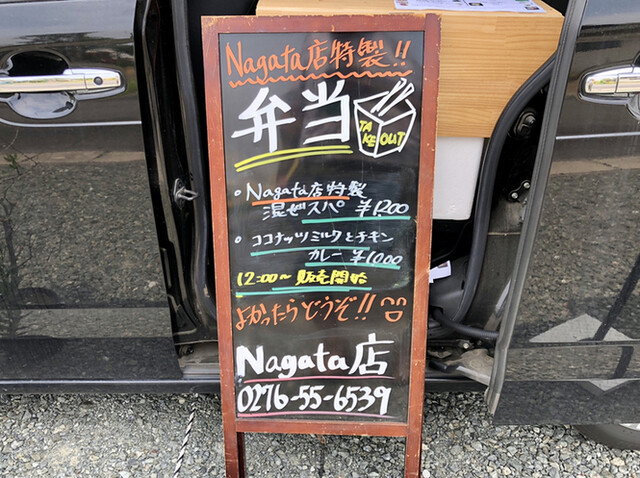 Nagata店特製!!
弁当
TAKE OUT
・Nagata店特製
混ぜスパ ¥1200
・ココナッツミルクとチキン
カレー ¥1000
12:00〜 販売開始
よかったらどうぞ!!
Nagata店
0276-55-6539